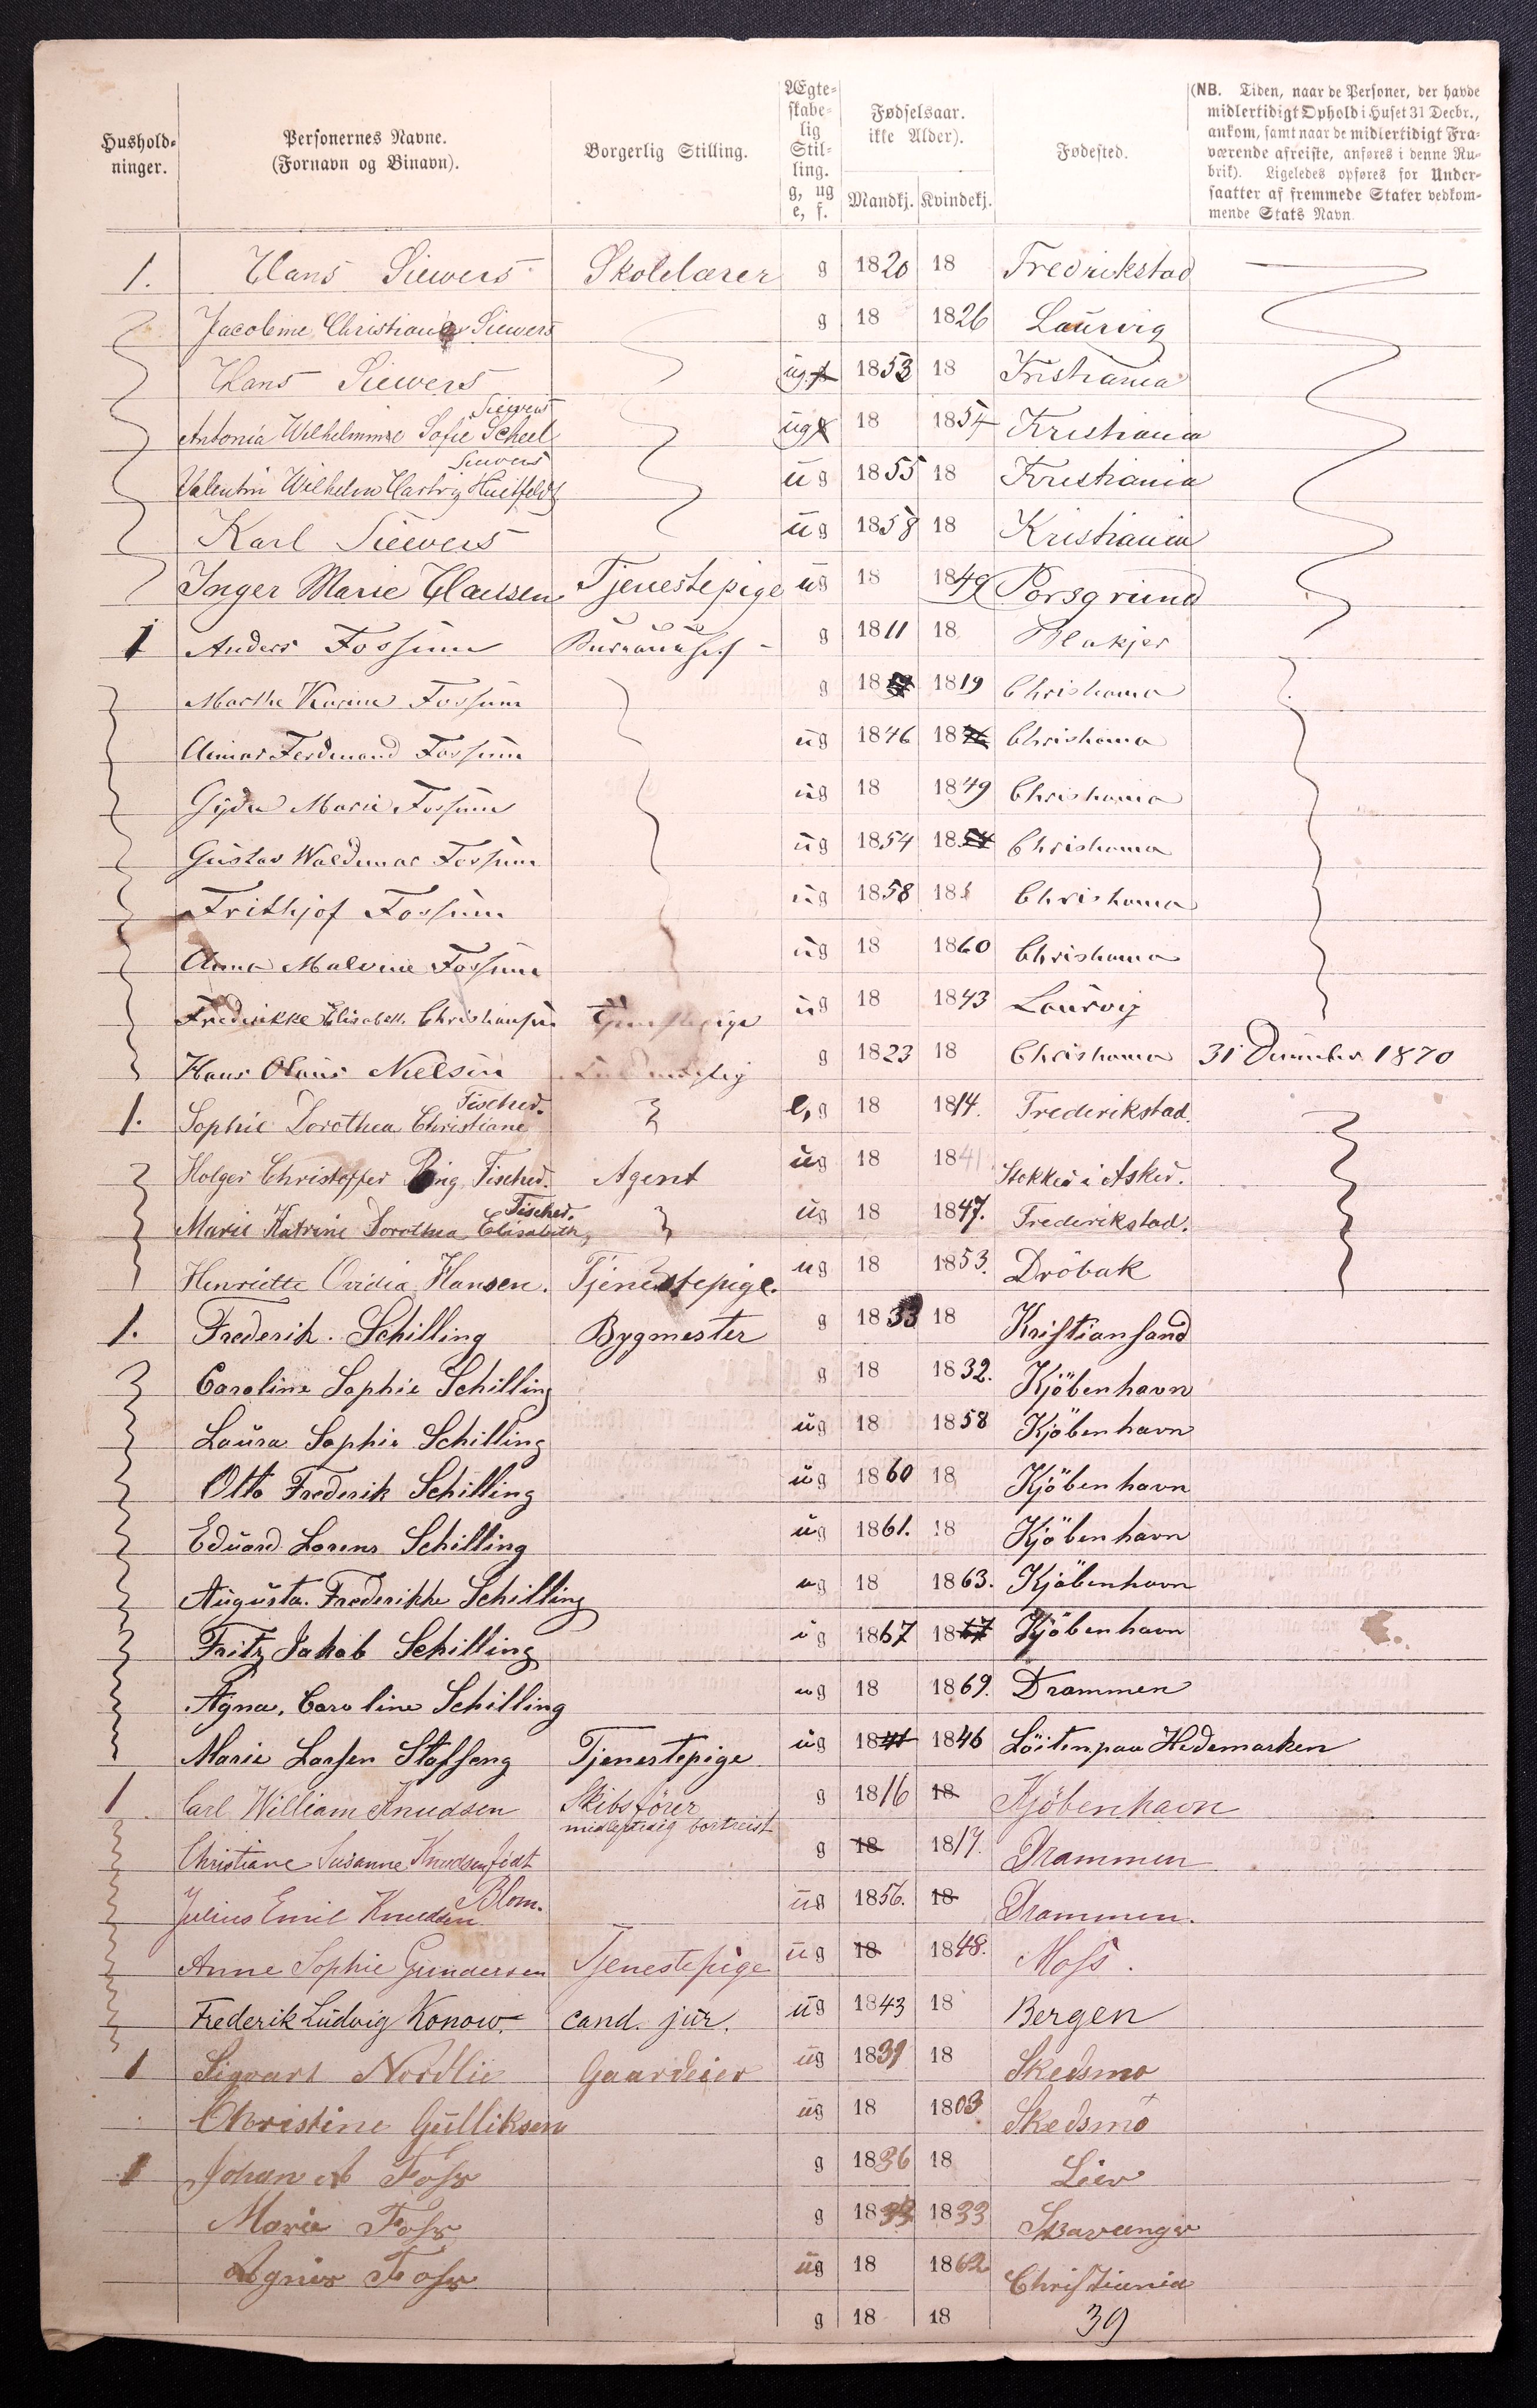 Hushold-
ninger.
Personernes Navne.
(Fornavn og Binavn).
Borgerlig Stilling.
Ægte-
skabe-
lig
Stil-
ling.
g, ug
e, f.
Fødselsaar.
ikke Alder).
Mandkj. Kvindekj.
Fødested.
(NB. Tiden, naar de Personer, der havde
midlertidigt Ophold i Huset 31 Decbr.,
ankom, samt naar de midlertidigt Fra-
værende afreiste, anføres i denne Ru-
brik). Ligeledes opføres for Under-
saatter af fremmede Stater vedkom-
mende Stats Navn.
1. Hans Siewers Skolelærer g 1820 18 Fredrikstad
Jacobine Christiane Siewers g 18 1826 Laurvig
Hans Siewers ug 1853 18 Kristiania
Siewers
Antonia Wilhelmine Sofie Scheel ug 18 1854 Kristiania
Siewers
Valentin Wilhelm Hartvig Huitfeldt ug 1855 18 Kristiania
Karl Siewers ug 1858 18 Kristiania
Inger Marie Claussen Tjenestepige ug 18 1849 Porsgrund
1 Anders Fossum g 1811 18 Blakjer
Marthe Karine Fossum g 18 1819 Christiania
Ferdinand Fossum ug 1846 18 Christiania
Gyda Marie Fossum ug 18 1849 Christiania
Gustav Waldemar Fossum ug 1854 18 Christiania
Frithjof Fossum ug 1858 18 Christiania
Anna Malvine Fossum ug 18 1860 Christiania
Fredrikke Elisabeth Christiansen Tjenestepige ug 18 1843 Laurvig
Hans Olaus Nielsen g 1823 18 Christiania 31 December 1870
Fischer.
1. Sophie Dorothea Christiane e, g 18 1814. Frederikstad.
Holger Christoffer Ring Fischer. Agent ug 18 1841 Stokker i Asker.
Fischer.
Marie Katrine Dorothea Elisabeth, ug 18 1847. Frederikstad.
Henriette Ovidia Hansen. Tjenestepige. ug 18 1853. Dröbak
1. Frederik. Schilling Bygmester g 1833 18 Kristiansand
Caroline Sophie Schilling g 18 1832. Kjöbenhavn
Laura Sophie Schilling ug 18 1858 Kjöbenhavn
Otto Frederik Schilling ug 1860 18 Kjöbenhavn
Eduard Lorens Schilling ug 1861. 18 Kjöbenhavn
Augusta. Frederikke Schilling ug 18 1863. Kjöbenhavn
Fritz Jakob Schilling ug 1867 1867 Kjöbenhavn
Agna. Caroline Schilling ug 18 1869. Drammen
Marie Larsen Stafseng Tjenestepige ug 18 1846 Löiten paa Hedemarken
1 Carl William Knudsen Skibsförer g 1816 18 Kjöbenhavn
midlertidig bortreist
Christiane Susanne Knudsen födt g 18 1817. Drammen
Blom.
Julius Emil Knudsen ug 1856. 18 Drammen.
Anne Sophie Gundersen Tjenestepige ug 18 1848. Moss.
Frederik Ludvig Konow. cand. jur. ug 1843 18 Bergen
1 Sigvart Nordlie Gaardeier ug 1839 18 Skedsmo
Christine Gulliksen ug 18 1803 Skedsmo
1 Johan A Foss g 1836 18 Lier
Marie Foss g 1833 1833 Stavanger
Agnes Foss ug 18 1862 Christiania
g 18 18 39